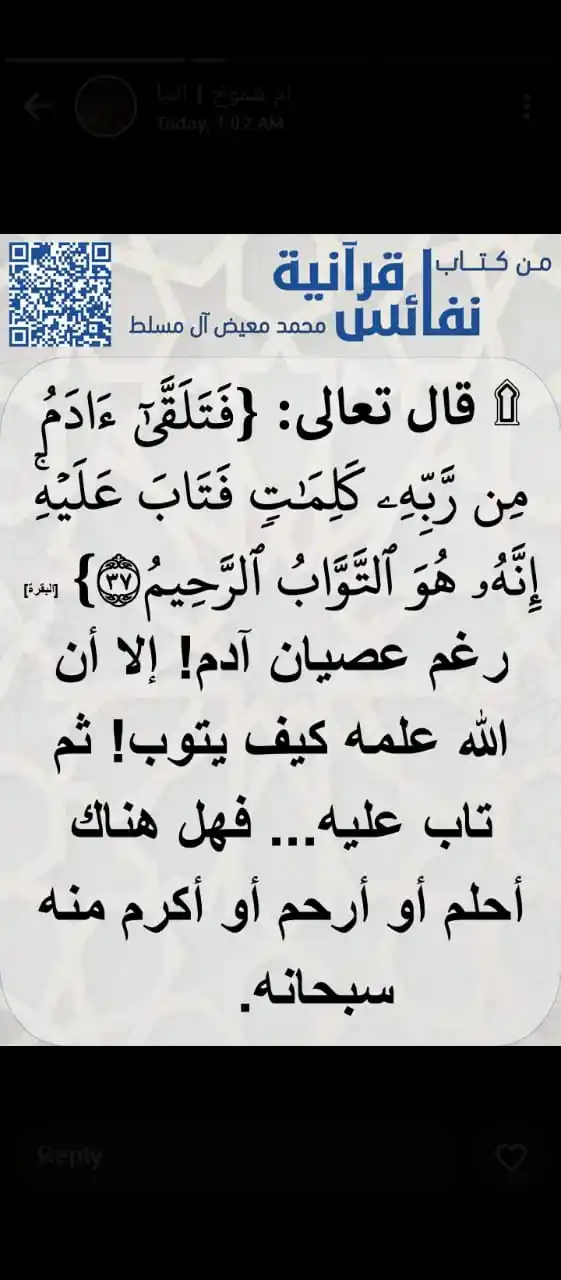 Today, 1:02 AM
من كتاب
نفائس قرآنية
محمد معيض آل مسلط
۩ قال تعالى: {فَتَلَقَّىٰٓ ءَادَمُ
مِن رَّبِّهِۦ كَلِمَٰتٖ فَتَابَ عَلَيۡهِۚ
إِنَّهُۥ هُوَ ٱلتَّوَّابُ ٱلرَّحِيمُ ٣٧} [البقرة]
رغم عصيان آدم! إلا أن
الله علمه كيف يتوب! ثم
تاب عليه... فهل هناك
أحلم أو أرحم أو أكرم منه
سبحانه.
Reply